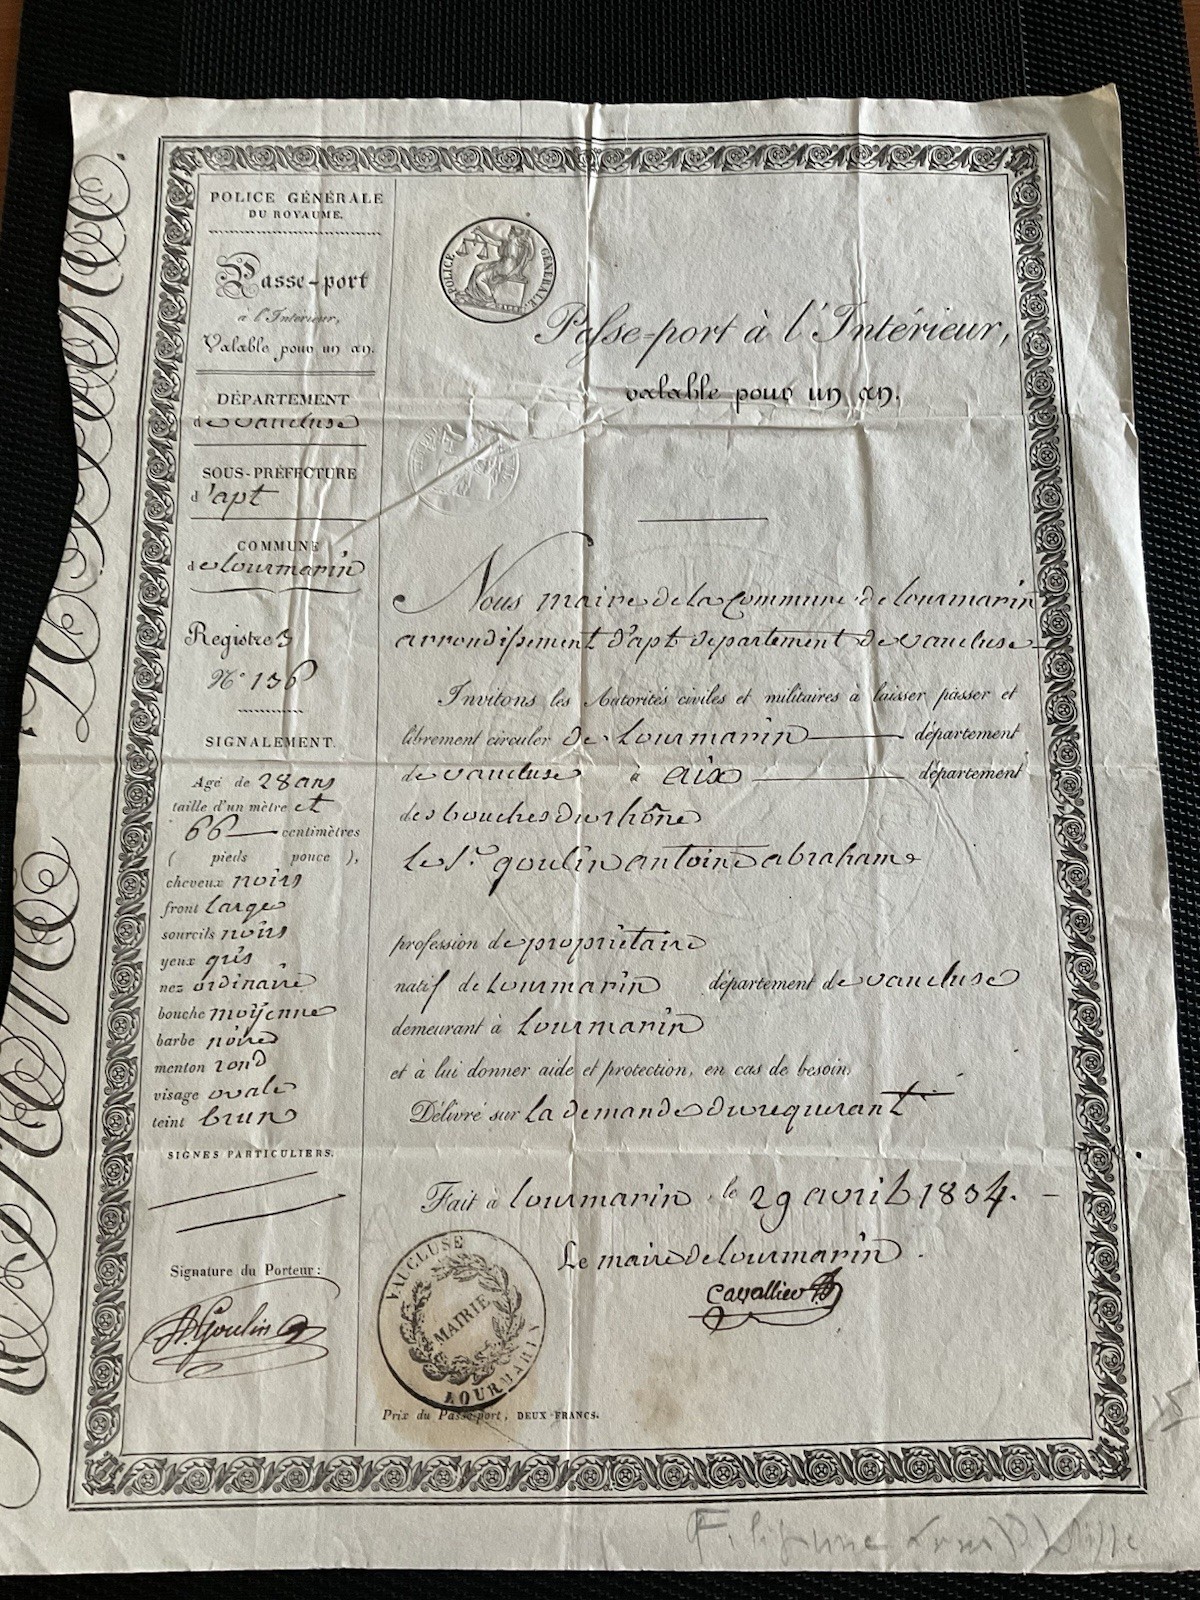 POLICE GÉNÉRALE
DU ROYAUME.
Passe-port
à l'Intérieur,
Valable pour un an.
DÉPARTEMENT
de vaucluse
SOUS-PRÉFECTURE
d'apt
COMMUNE
de lourmarin
Registre 3
N° 136
SIGNALEMENT.
Agé de 28 ans
taille d'un mètre et
66 centimètres
( pieds pouce ),
cheveux noirs
front large
sourcils noirs
yeux gris
nez ordinaire
bouche moyenne
barbe noire
menton rond
visage ovale
teint brun
SIGNES PARTICULIERS.
Signature du Porteur:
A. Goulin
POLICE GÉNÉRALE
Passe-port à l'Intérieur,
valable pour un an.
Nous maire de la Commune de lourmarin
arrondissement d'apt departement de vaucluse
Invitons les Autorités civiles et militaires à laisser passer et
librement circuler de Lourmarin département
de vaucluse à aix département
des bouches du rhône
le Sr. goulin antoine abraham
profession de propriétaire
natif de Lourmarin département de vaucluse
demeurant à Lourmarin
et à lui donner aide et protection, en cas de besoin.
Délivré sur la demande du requerant
Fait à lourmarin, le 29 avril 1834.
Le maire de lourmarin.
Cavallier
VAUCLUSE
MAIRIE
LOURMARIN
Prix du Passe-port, DEUX FRANCS.